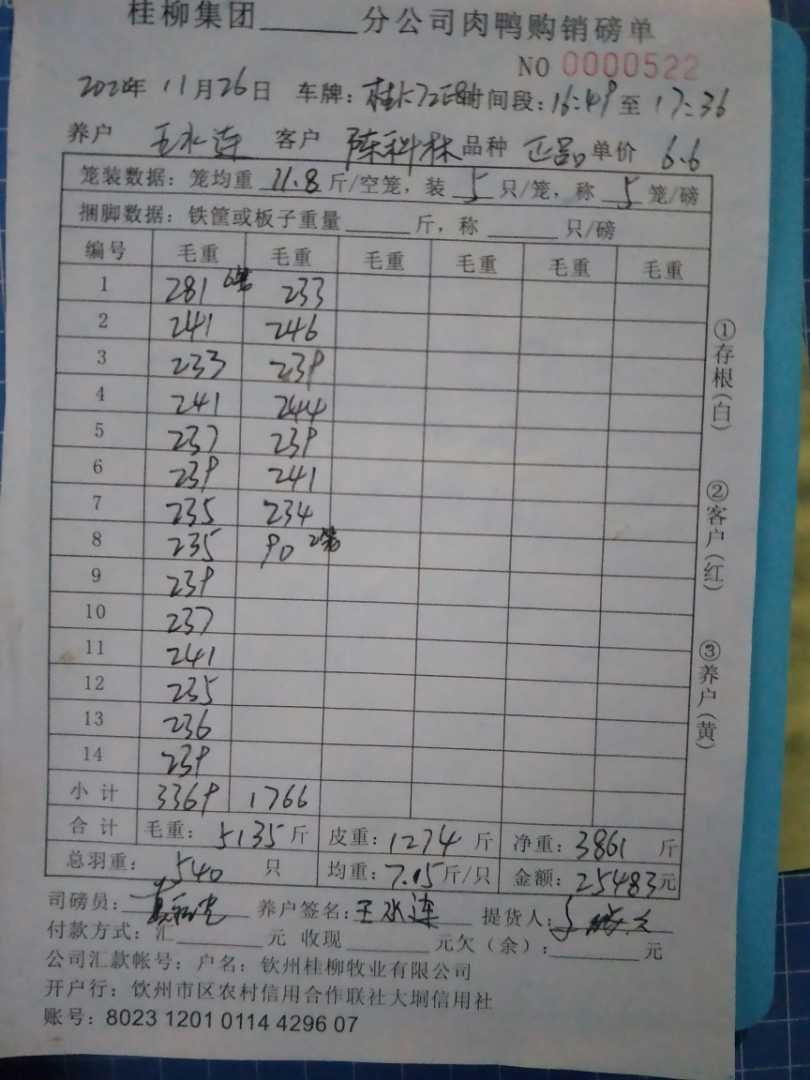 桂柳集团______分公司肉鸭购销磅单
NO 0000522
202 年 11月26日 车牌：桂 时间段：16:49至17:36
养户 王水连 客户 陈科林 品种 正品 单价 6.6
笼装数据：笼均重 11.8 斤/空笼，装 5 只/笼，称 5 笼/磅
捆脚数据：铁筐或板子重量______斤，称______只/磅
编号 毛重 毛重 毛重 毛重 毛重 毛重
1 281 6笼 233
2 241 246
3 233 239
4 241 244
5 237 239
6 239 241
7 235 234
8 235 90 2笼
9 239
10 237
11 241
12 235
13 236
14 239
小计 3369 1766
合计 毛重：5135斤 皮重：1274斤 净重：3861斤
总羽重：540只 均重：7.15斤/只 金额：25483元
司磅员： 养户签名：王水连 提货人：
付款方式：汇______元 收现______元欠（余）：______元
公司汇款帐号：户名：钦州桂柳牧业有限公司
开户行：饮州市区农村信用合作联社大垌信用社
账号：8023 1201 0114 4296 07
①存根(白)
②客户(红)
③养户(黄)